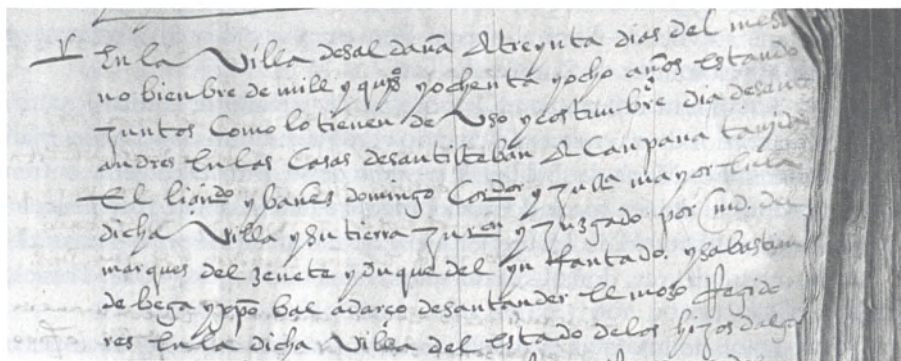 En la Villa de saldaña A treynta dias del mes
no bienbre de mill y quios y ochenta y ocho años estando
Juntos Como lo tienen de Uso y costunbre dia de sant
andres En las Casas de santisteban A Canpana tanjida
El liçendo ybañes domingo Corredor y Justa mayor En la
dicha Villa y su tierra y Juzgado por md. del
marques del zenete y Duque del ynfantado. y sabastian
de bega y po desantander El moço Regido
res En la dicha Villa del Estado de los hijos dalgo